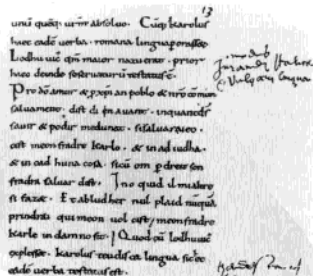 13
unū quēq; urm̄ absoluo. Cūq; karolus
haec eadē uerba. romana lingua p̱orasset.
Lodhuuic' qm̄ maior natu erat. prior
haec deinde se seruaturū testatus ē.
Pro dō amur & pxp̄ian poblo & nrō cōmun
saluament. dist di en auant. inquantds
sauir & podir medunat. sisaluaraieo.
cist meon fradre karlo. & in ad iudha.
& in cad huna cosa. sicū om p dreit son
fradra saluar dist. Ino quid il mi altre
si faz&. Et abludher nul plaid nūquā
prindrai qui meon uol cist meon fradre
karle in damno sit. Quod cū lodhuuic'
explesset. karolus teudisca lingua sic ec
eadē uerba testatus est.